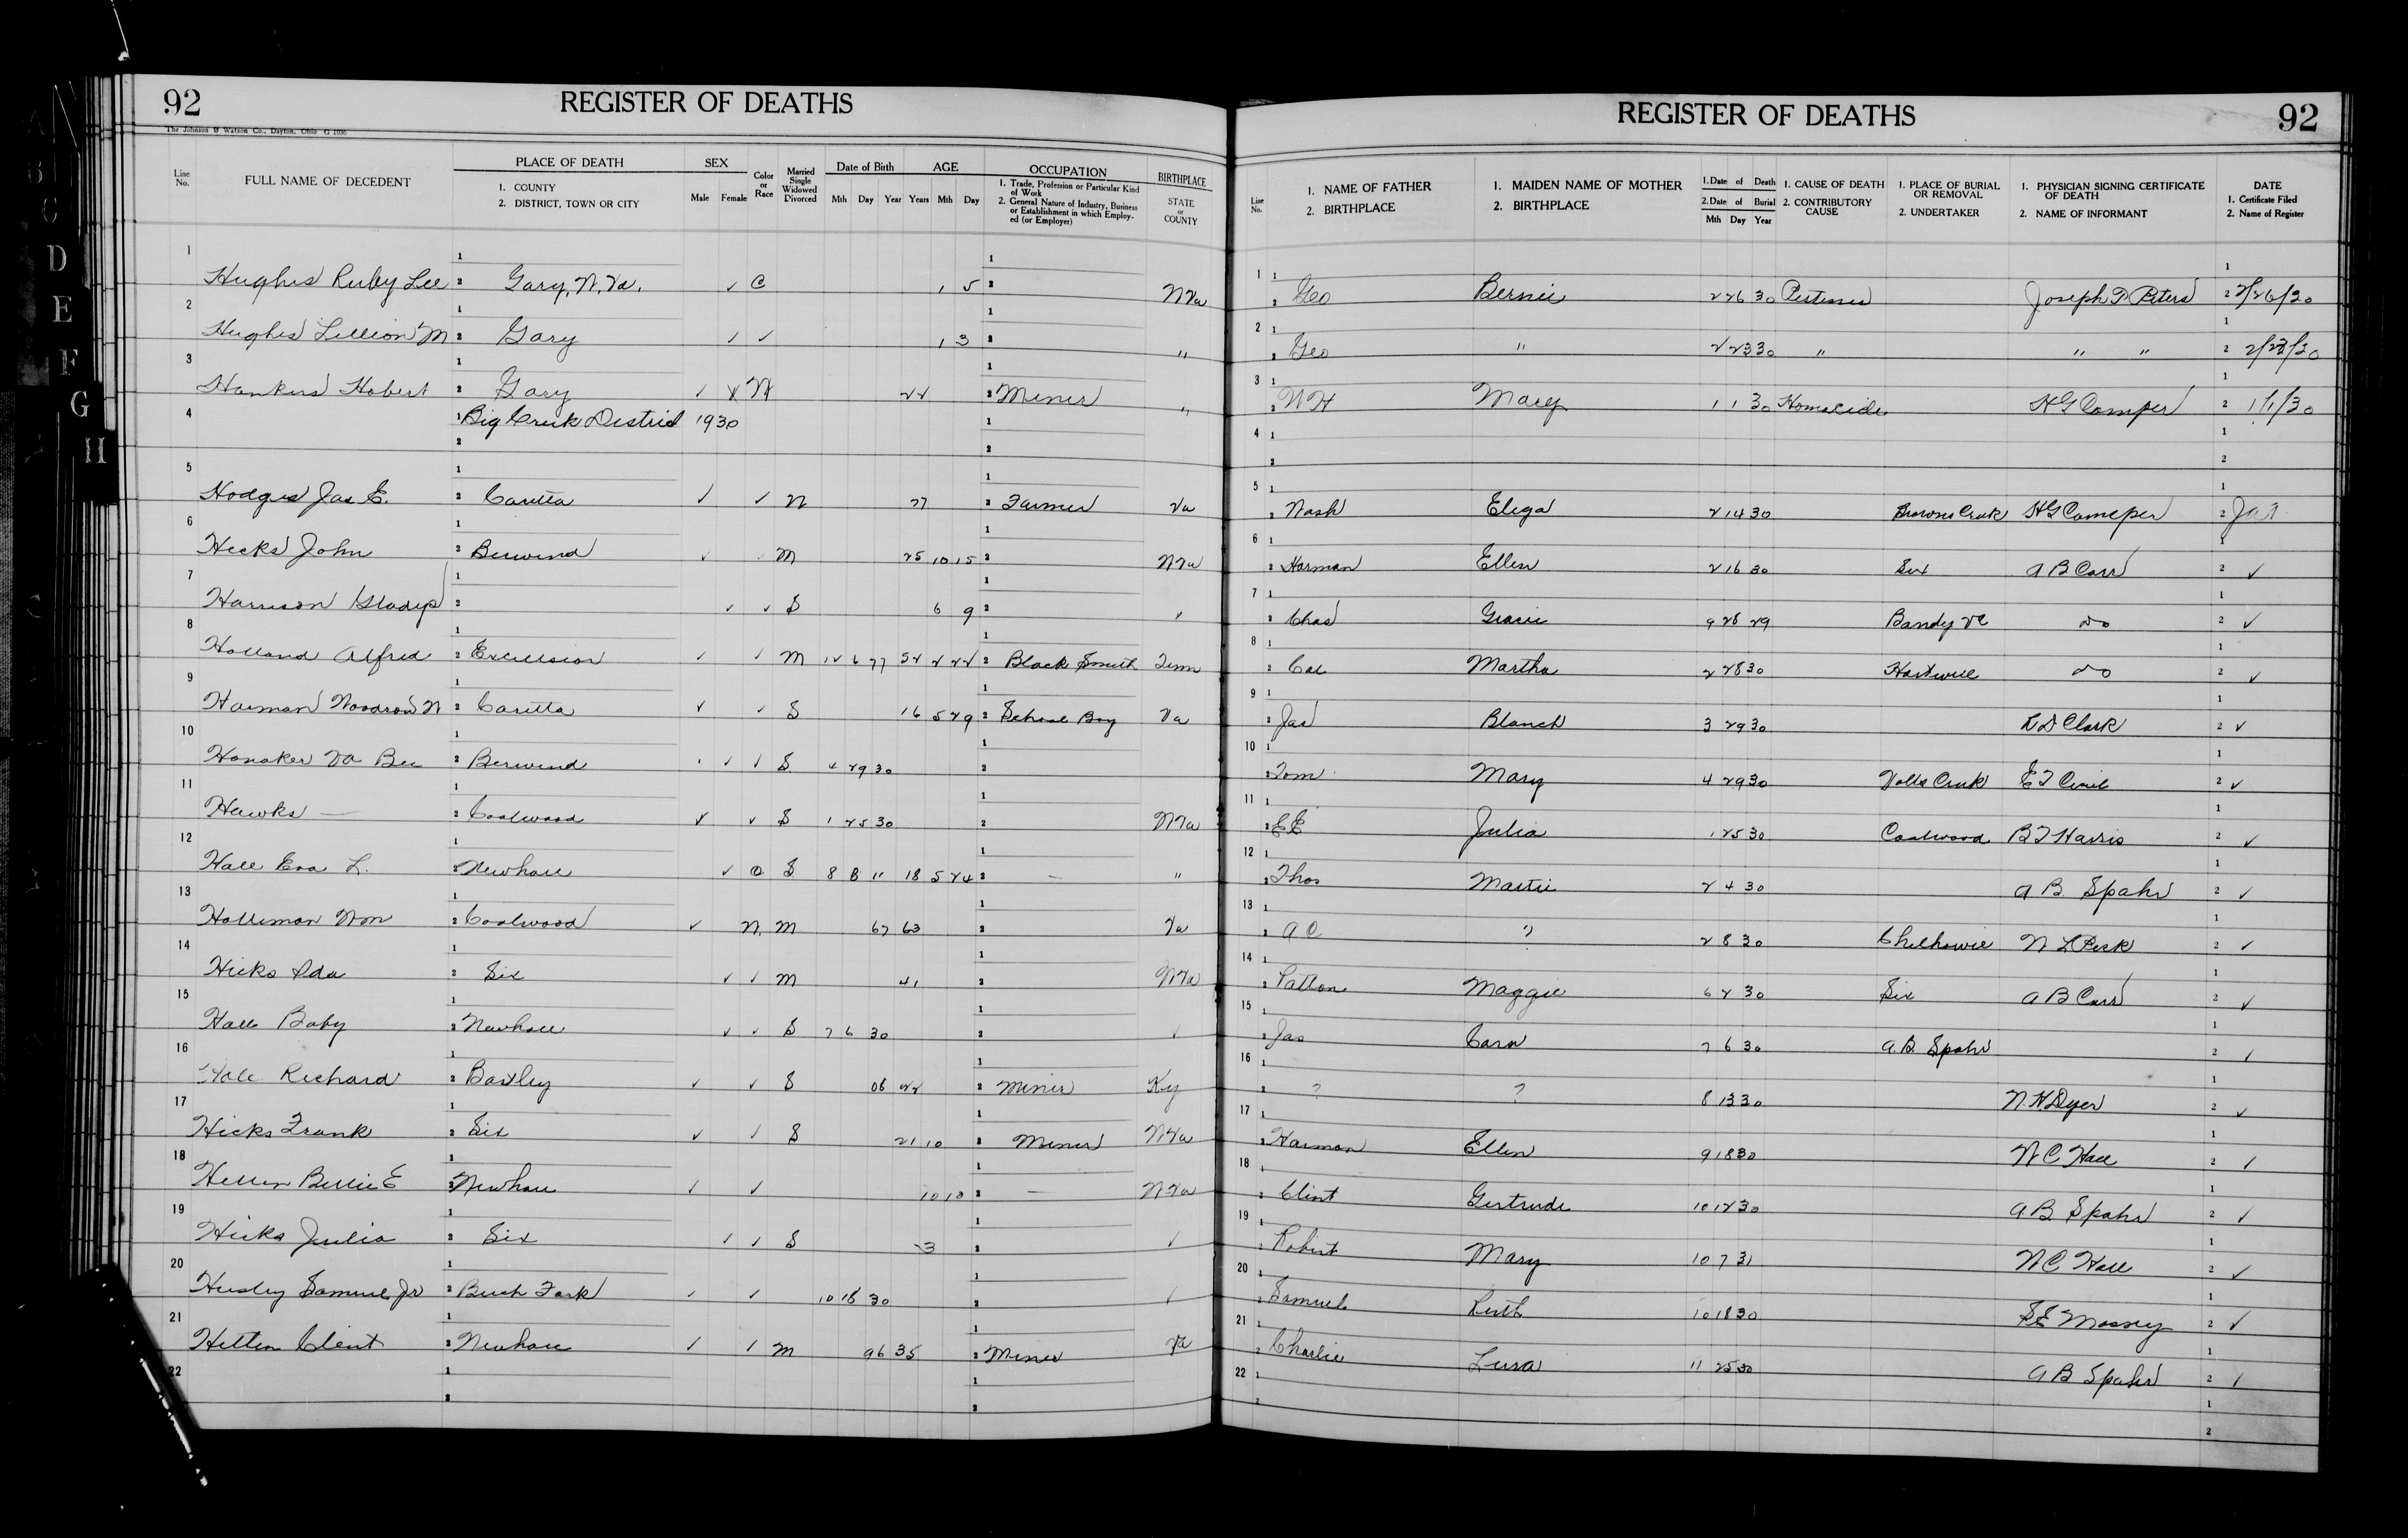 92 REGISTER OF DEATHS
The Johnson & Watson Co., Dayton, Ohio G 1030
Line No. FULL NAME OF DECEDENT PLACE OF DEATH 1. COUNTY 2. DISTRICT, TOWN OR CITY SEX Male Female Color or Race Married Single Widowed Divorced Date of Birth Mth Day Year AGE Years Mth Day OCCUPATION 1. Trade, Profession or Particular Kind of Work 2. General Nature of Industry, Business or Establishment in which Employed (or Employer) BIRTHPLACE STATE or COUNTY
1 Hughes Ruby Lee Gary, W. Va. ✓ C 1 5 W Va
2 Hughes Lillion M Gary ✓ ✓ 1 3 "
3 Hankins Hobert Gary ✓ W 22 Miner "
4 Big Creek District 1930
5 Hodges Jas E. Caretta ✓ ✓ W 77 Farmer Va
6 Hicks John Berwind ✓ M 25 10 15 W Va
7 Harrison Gladys ✓ ✓ S 6 9 ✓
8 Holland Alfred Excelsior ✓ ✓ M 12 6 77 52 2 22 Black Smith Tenn
9 Harman Woodrow W Caretta ✓ ✓ S 16 5 29 School Boy Va
10 Honaker Va Bee Berwind ✓ ✓ S 4 29 30
11 Hawks — Coalwood ✓ ✓ S 1 25 30 W Va
12 Hall Eva L. Newhall ✓ C S 8 8 11 18 5 24 — "
13 Holliman Wm Coalwood ✓ W. M 67 63 Va
14 Hicks Ida Six ✓ ✓ M 41 W Va
15 Hall Baby Newhall ✓ ✓ S 7 6 30 ✓
16 Hall Richard Bartley ✓ ✓ S 08 22 Miner Ky
17 Hicks Frank Six ✓ ✓ S 21 10 Miner W Va
18 Newhall ✓ ✓ 10 10 — W Va
19 Hicks Julia Six ✓ ✓ S 3 ✓
20 Samuel Jr Fork ✓ ✓ 10 18 30 ✓
21 Clint Newhall ✓ ✓ M 96 35 Miner Va
22
REGISTER OF DEATHS 92
Line No. 1. NAME OF FATHER 2. BIRTHPLACE 1. MAIDEN NAME OF MOTHER 2. BIRTHPLACE 1. Date of Death 2. Date of Burial Mth Day Year 1. CAUSE OF DEATH 2. CONTRIBUTORY CAUSE 1. PLACE OF BURIAL OR REMOVAL 2. UNDERTAKER 1. PHYSICIAN SIGNING CERTIFICATE OF DEATH 2. NAME OF INFORMANT DATE 1. Certificate Filed 2. Name of Register
1 Geo Bernice 2 26 30 Joseph D Peters 2/26/30
2 Geo " 2 23 30 " " " 2/23/30
3 W H Mary 1 1 30 Homicide H G Camper 1/1/30
4
5 Nash 2 14 30 Browns Creek H G Cameper
6 Harman Ellen 2 16 30 Six A B Carr ✓
7 Chas Gracie 9 28 29 Bandy Va do ✓
8 Cal Martha 2 28 30 Hartwell do ✓
9 Jas Blanch 3 29 30 Clark ✓
10 Tom Mary 4 29 30 Creek ✓
11 E E Julia 1 25 30 Coalwood B T Harris ✓
12 Thos Mattie 2 4 30 A B. Spahr ✓
13 A C ? 2 8 30 Chilhowie W L Peck ✓
14 Patton Maggie 6 2 30 Six A B Carr ✓
15 Jas Cara 7 6 30 A. B. Spahr ✓
16 ? ? 8 13 30 W H Dyer ✓
17 Harman Ellen 9 18 30 W C Hall ✓
18 Clint Gertrude 10 12 30 A. B. Spahr ✓
19 Robert Mary 10 7 31 W C Hall ✓
20 Samuel Ruth 10 18 30 Massey ✓
21 Charlie 11 25 30 A B Spahr ✓
22
D
E
F
G
H